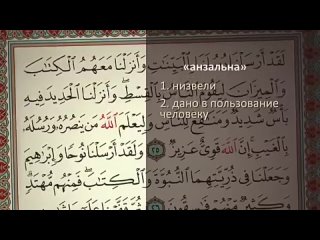 لَقَدْ أَرْسَلْنَا رُسُلَنَا بِالْبَيِّنَاتِ وَأَنزَلْنَا مَعَهُمُ الْكِتَابَ
وَالْمِيزَانَ لِيَقُومَ النَّاسُ بِالْقِسْطِ وَأَنزَلْنَا الْحَدِيدَ فِيهِ
بَأْسٌ شَدِيدٌ وَمَنَافِعُ لِلنَّاسِ وَلِيَعْلَمَ اللَّهُ مَن يَنصُرُهُ وَرُسُلَهُ
بِالْغَيْبِ إِنَّ اللَّهَ قَوِيٌّ عَزِيزٌ ٢٥ وَلَقَدْ أَرْسَلْنَا نُوحًا وَإِبْرَاهِيمَ
وَجَعَلْنَا فِي ذُرِّيَّتِهِمَا النُّبُوَّةَ وَالْكِتَابَ فَمِنْهُم مُّهْتَدٍ
«анзальна»
1. низвели
2. дано в пользование
человеку